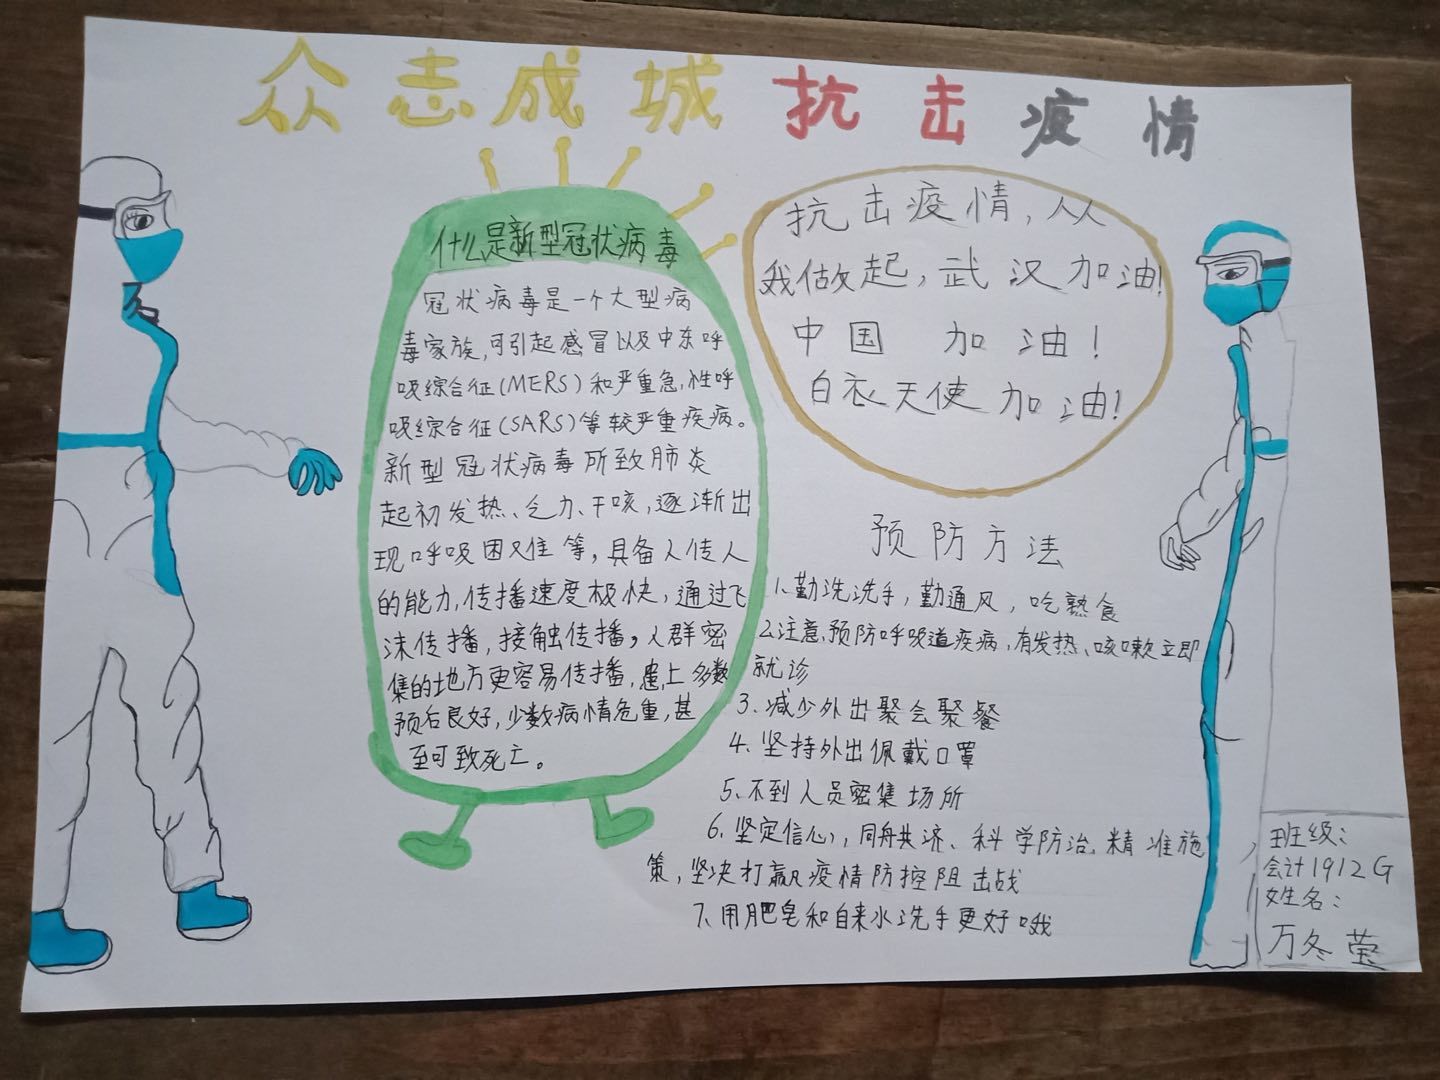 众志成城抗击疫情
什么是新型冠状病毒
冠状病毒是一个大型病
毒家族,可引起感冒以及中东呼
吸综合征(MERS)和严重急,性呼
吸综合征(SARS)等较严重疾病。
新型冠状病毒所致肺炎
起初发热、乏力、干咳,逐渐出
现呼吸困难等,具备人传人
的能力,传播速度极快,通过飞
沫传播,接触传播,人群密
集的地方更容易传播,患上多数
预后良好,少数病情危重,甚
至可致死亡。
抗击疫情,从
我做起,武汉加油!
中国 加油!
白衣天使加油!
预防方法
1、勤洗洗手,勤通风,吃熟食
2、注意、预防呼吸道疾病,有发热、咳嗽立即
就诊
3、减少外出聚会聚餐
4、坚持外出佩戴口罩
5、不到人员密集场所
6、坚定信心,同舟共济、科学防治,精准施
策,坚决打赢疫情防控阻击战
7、用肥皂和自来水洗手更好哦
班级:
会计1912G
姓名:
万冬莹